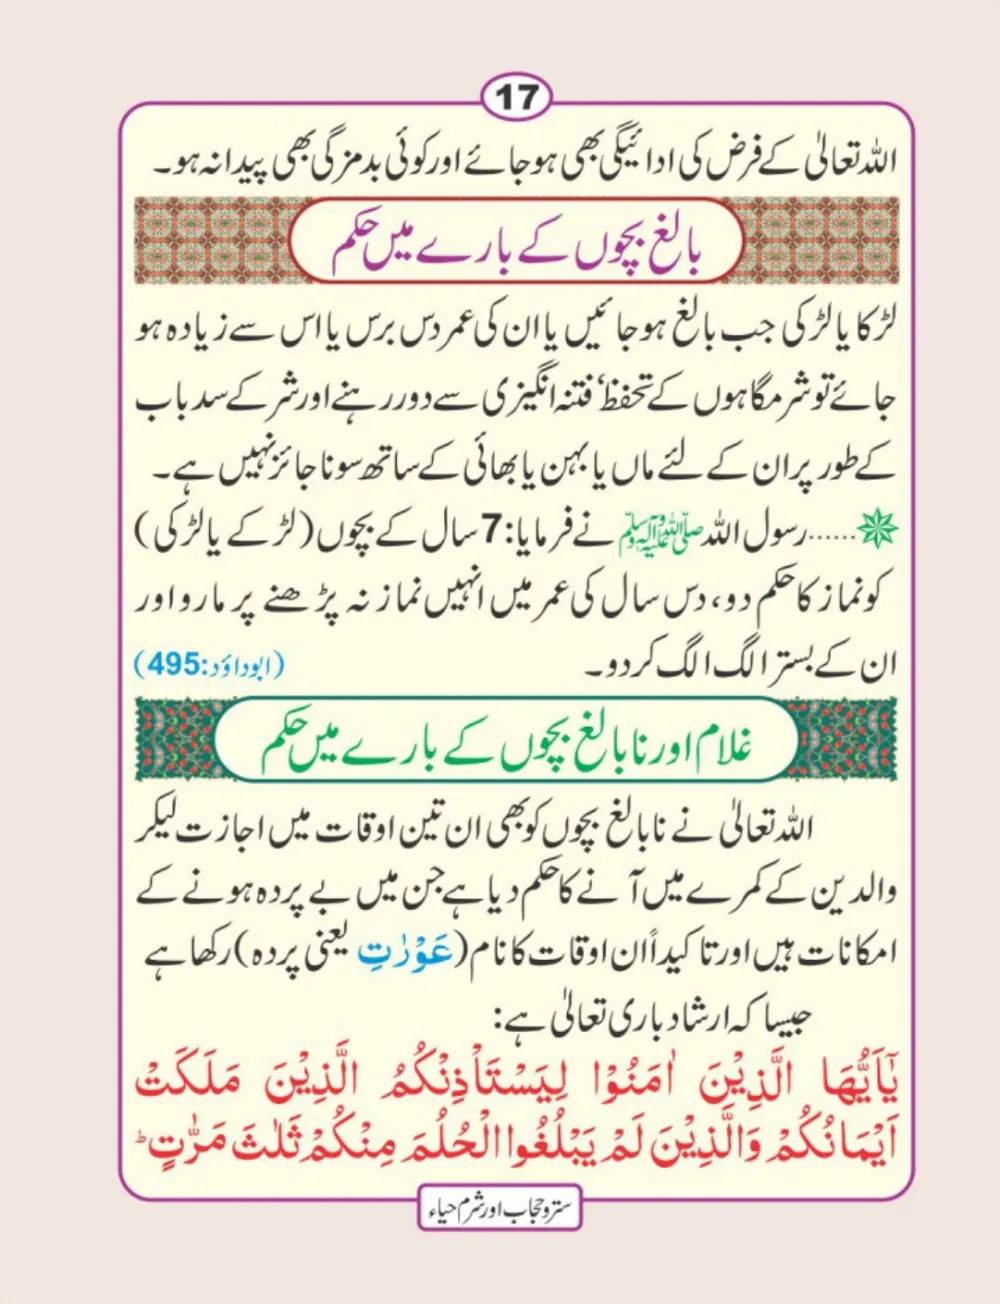 17
اللہ تعالیٰ کے فرض کی ادائیگی بھی ہو جائے اور کوئی بدمزگی بھی پیدا نہ ہو۔
بالغ بچوں کے بارے میں حکم
لڑکا یا لڑکی جب بالغ ہو جائیں یا ان کی عمر دس برس یا اس سے زیادہ ہو
جائے تو شرمگاہوں کے تحفظ‘ فتنہ انگیزی سے دور رہنے اور شر کے سد باب
کے طور پر ان کے لئے ماں یا بہن یا بھائی کے ساتھ سونا جائز نہیں ہے۔
......رسول اللہ ﷺ نے فرمایا: 7 سال کے بچوں (لڑکے یا لڑکی)
کو نماز کا حکم دو، دس سال کی عمر میں انہیں نماز نہ پڑھنے پر مارو اور
ان کے بستر الگ الگ کر دو۔ (ابوداؤد:495)
غلام اور نابالغ بچوں کے بارے میں حکم
اللہ تعالیٰ نے نابالغ بچوں کو بھی ان تین اوقات میں اجازت لیکر
والدین کے کمرے میں آنے کا حکم دیا ہے جن میں بے پردہ ہونے کے
امکانات ہیں اور تاکیداً ان اوقات کا نام (عَوْرٰتِ یعنی پردہ) رکھا ہے
جیسا کہ ارشاد باری تعالیٰ ہے:
يٰۤاَيُّهَا الَّذِيْنَ اٰمَنُوْا لِيَسْتَاْذِنْكُمُ الَّذِيْنَ مَلَكَتْ
اَيْمَانُكُمْ وَالَّذِيْنَ لَمْ يَبْلُغُوا الْحُلُمَ مِنْكُمْ ثَلٰثَ مَرّٰتٍ ؕ
ستر و حجاب اور شرم حیاء